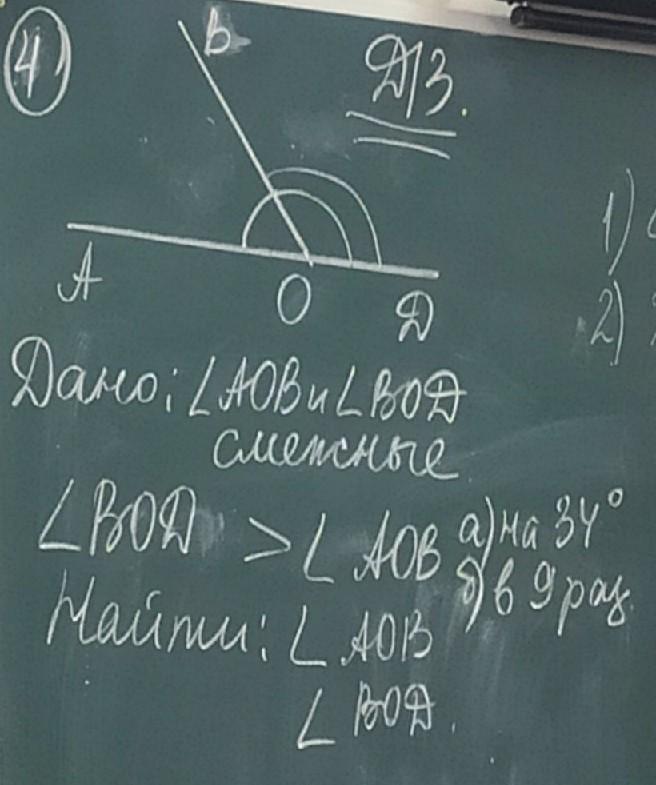 4)
Д/З.
B
A
O
Д
1)
2)
Дано: ∠AOB и ∠BOД
смежные
∠BOД > ∠AOB а) на 34°
б) в 9 раз.
Найти: ∠AOB
∠BOД.